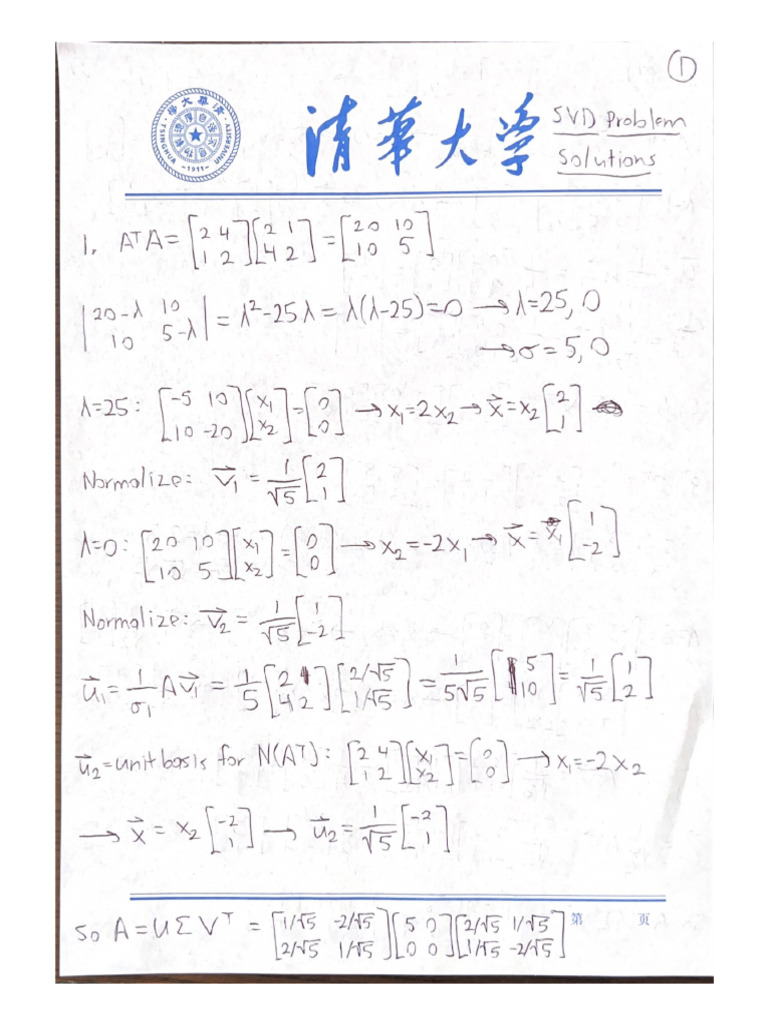 ①
清華大學
SVD Problem
Solutions
TSINGHUA UNIVERSITY
~1911~
1. AᵀA = [2 4; 1 2][2 1; 4 2] = [20 10; 10 5]
|20-λ 10; 10 5-λ| = λ²-25λ = λ(λ-25)=0 → λ=25, 0
→ σ = 5, 0
λ=25: [-5 10; 10 -20][x₁; x₂] = [0; 0] → x₁=2x₂ → x⃗=x₂[2; 1]
Normalize: v⃗₁ = 1/√5 [2; 1]
λ=0: [20 10; 10 5][x₁; x₂] = [0; 0] → x₂=-2x₁ → x⃗=x₁[1; -2]
Normalize: v⃗₂ = 1/√5 [1; -2]
u⃗₁ = 1/σ₁ Av⃗₁ = 1/5 [2 1; 4 2][2/√5; 1/√5] = 1/5√5 [5; 10] = 1/√5 [1; 2]
u⃗₂=unit basis for N(Aᵀ): [2 4; 1 2][x₁; x₂] = [0; 0] → x₁=-2x₂
→ x⃗ = x₂[-2; 1] → u⃗₂ = 1/√5 [-2; 1]
So A=UΣVᵀ = [1/√5 -2/√5; 2/√5 1/√5][5 0; 0 0][2/√5 1/√5; 1/√5 -2/√5]
第 页